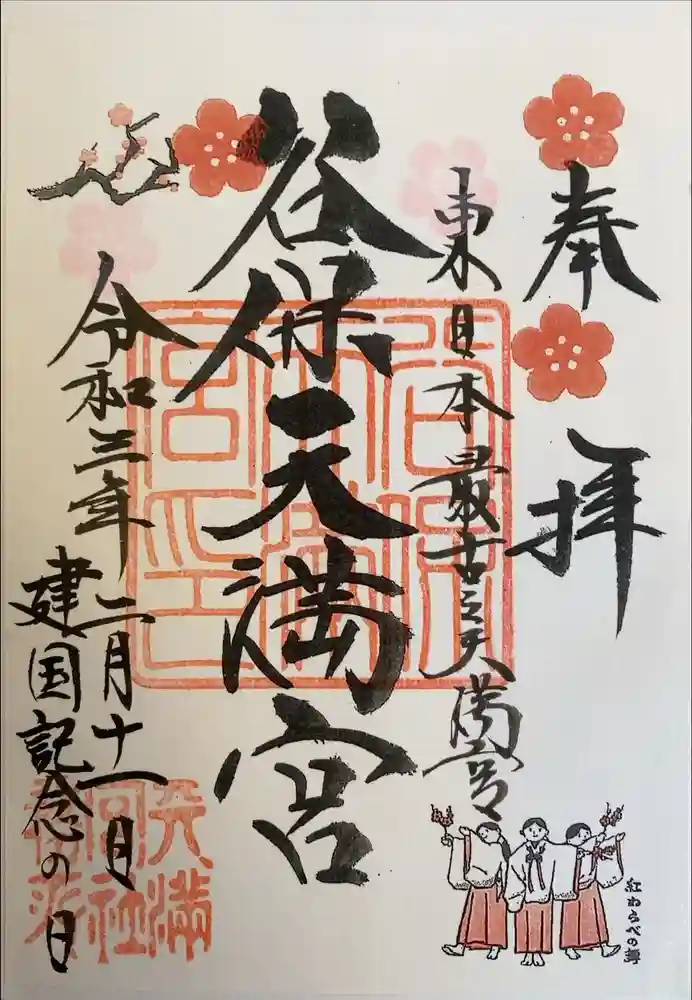 奉拝
東日本最古之天満宮
谷保天満宮
令和三年二月十一日
建国記念の日
紅わらべの舞
谷保天満宮印